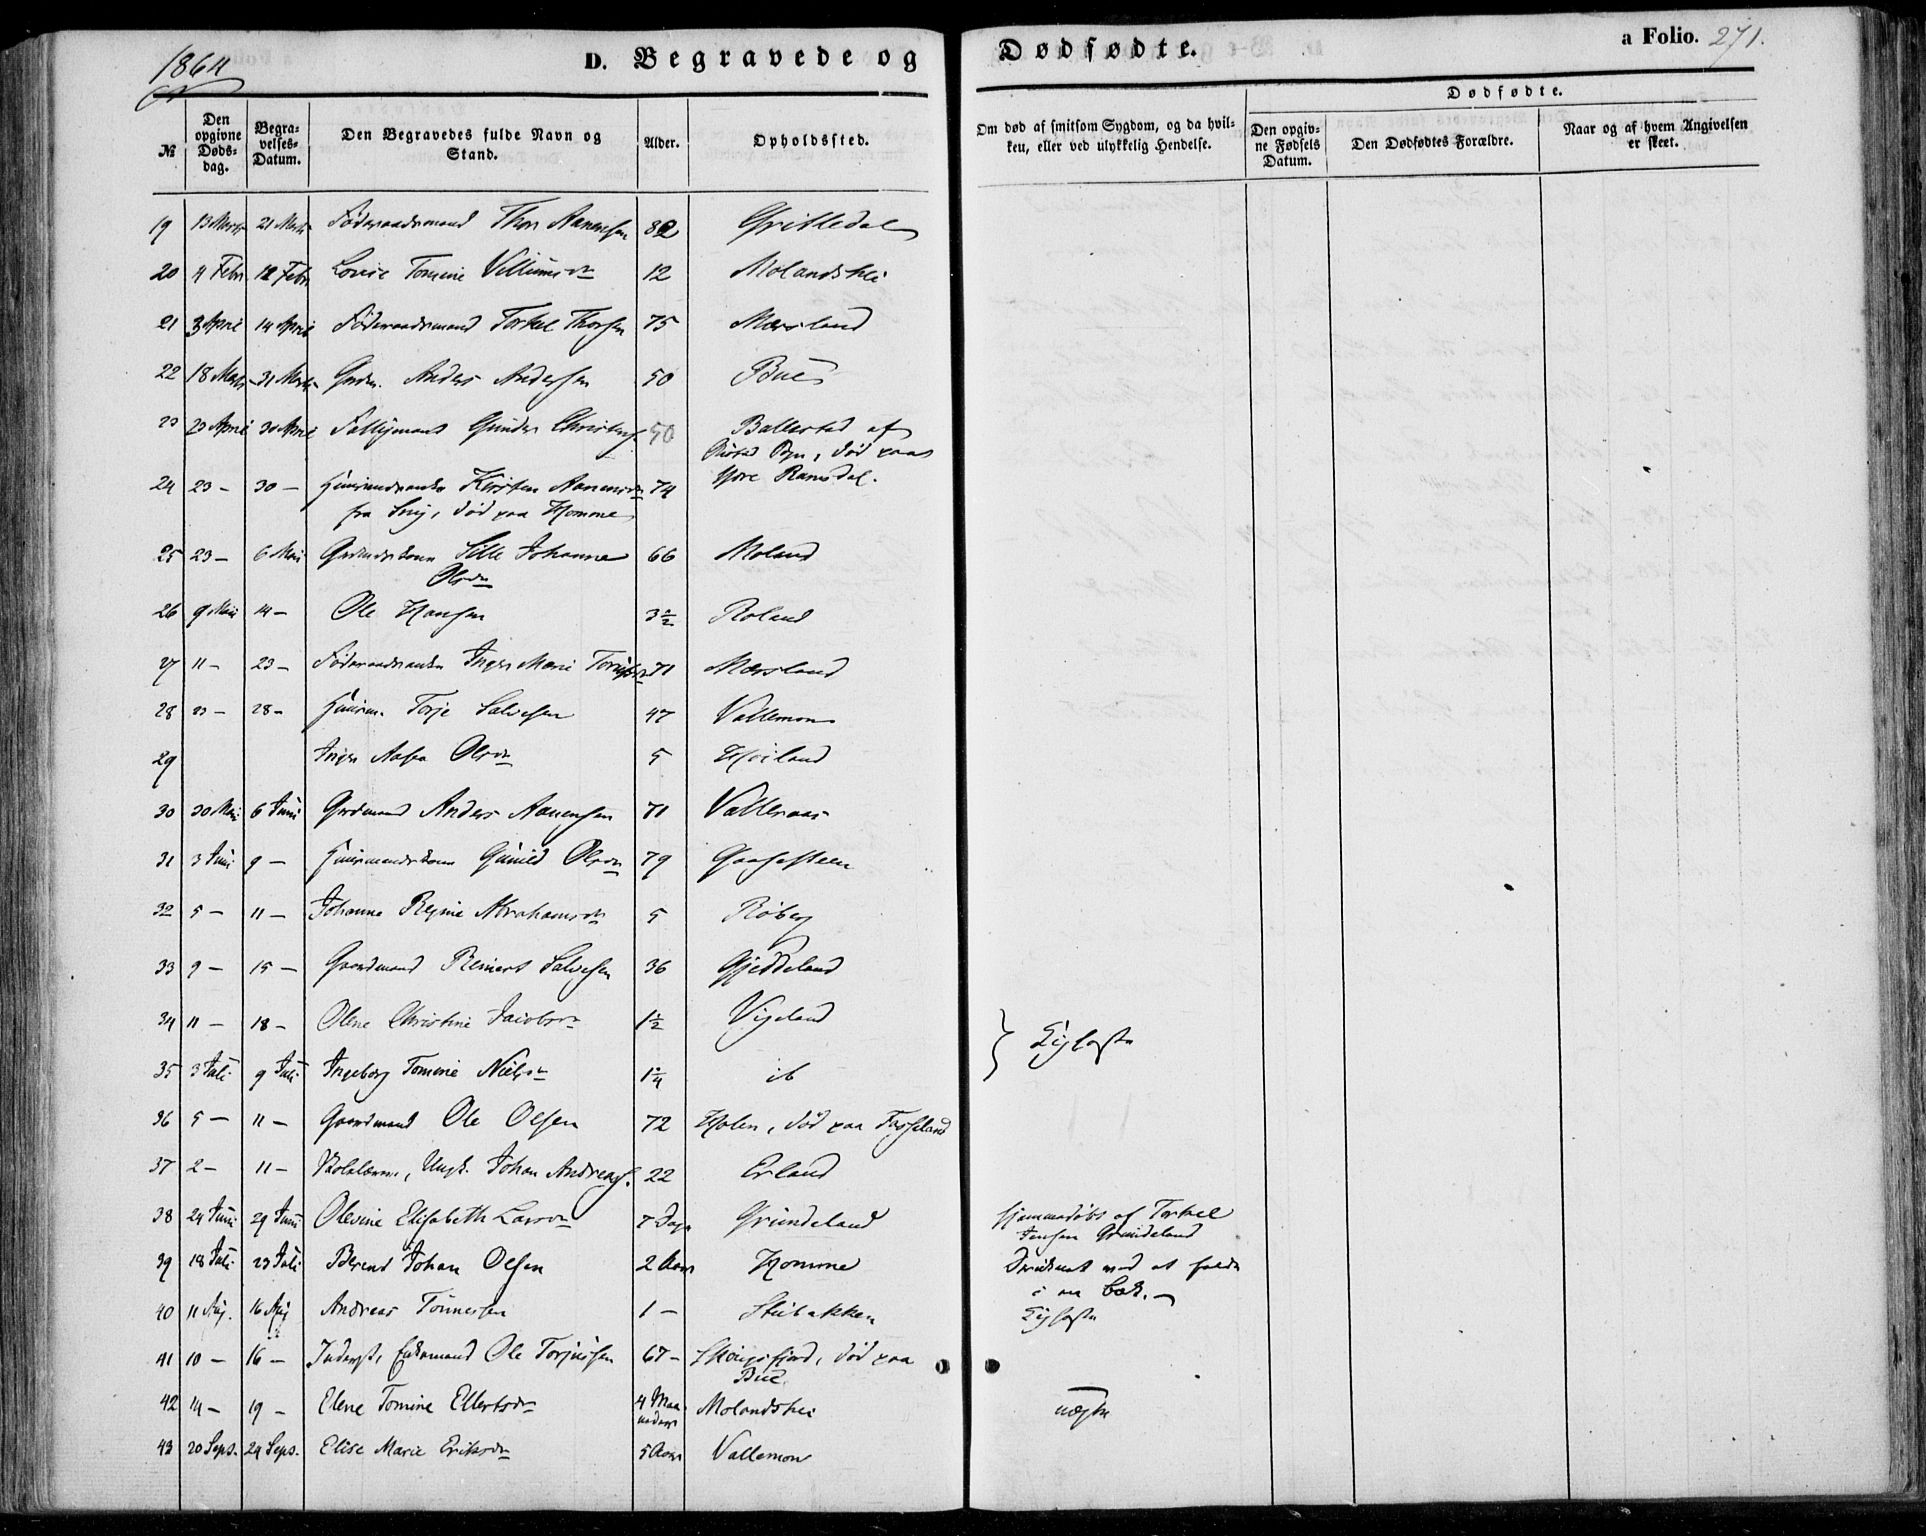 1864
D. Begravede og Dødfødte.
a Folio. 271.
№
Den opgivne Døds-dag.
Begra-velses-Datum.
Den Begravedes fulde Navn og Stand.
Alder.
Opholdssted.
Om død af smitsom Sygdom, og da hvil-ken, eller ved ulykkelig Hendelse.
Dødfødte.
Den opgiv-ne Fødsels Datum.
Den Dødfødtes Forældre.
Naar og af hvem Angivelsen er skeet.
19 13 Marts 21 Marts Føderaadsmand Thor Aanensen 82
20 4 Febr 12 Febr Lovise Tomine Villumsdr 12 Molandshei
21 3 April 14 April Føderaadsmand Torkel Thorsen 75 Mærsland
22 18 Marts 31 Marts Gmdn. Anders Andersen 50 Bue
23 23 April 30 April Gunder Christens. 50 Ballestad af
død paa
24 23 - 30 - Kirsten Aanensdr 74 Ramsdal.
død paa Homme
25 23 - 6 Mai Sille Johanne 66 Moland
Olsdr
26 9 Mai 14 - Ole Hansen 3 1/2 Roland
27 11 - 23 - Føderaadsenke Inger Marie 71 Mærsland
28 - 28 - Huusm. Torje Salvesen 47 Vallemon
29 Inger Aasea Olsdr 5 Høiland
30 30 Mai 6 Juni Grdmand Anders Aanensen 71 Valleraas
31 3 Juni 9 - Huusmandskone Gunild Olsdr 79 Gaasesteen
32 5 - 11 - Johanne Regine Abrahamsdr 5 Røberg
33 9 - 15 - Gaardmand Reinert Salvesen 36 Gjeddeland
34 11 - 18 - Olene Christine Jacobsdr 1 1/2 Vigeland
35 3 Juli 9 Juli Ingeborg Tomine Nielsdr 1 1/4 ib
} Kighoste
36 5 - 11 - Gaardmand Ole Olsen 72 Holen, død paa Fasseland
37 2 - 11 - Skolelærer, Ungk. Johan Andreas. 22 Erland
38 24 Juni 29 Juni Olevine Elisabeth Larsdr 7 Dage Grundeland Hjemmedøbt af Torkel
Jensen Grundeland
39 18 Juli 23 Juli Berend Johan Olsen 2 Aar Homme Druknet ved at falde
i en Bæk. -
40 11 Aug. 16 Aug Andreas Tønnesen 1 - Stubakken Kighoste
41 10 - 16 - Inderst, Enkemand Ole Torjussen 67 - død paa
Bue.
42 14 - 19 - Elene Tomine Ellertsdr 4 Maa-neder Molandshei uægte
43 20 Septr. 24 Septr. Elise Marie Eriksdr 5 Aar Vallemon